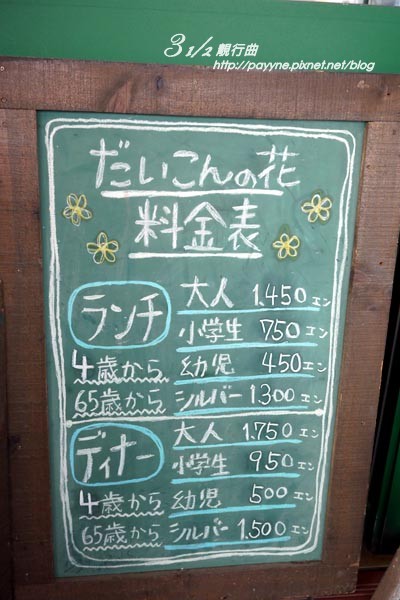 3 1/2 靚行曲
http://payyne.pixnet.net/blog
だいこんの花
料金表
ランチ 大人 1.450エン
小学生 750エン
4歳から 幼児 450エン
65歳から シルバー 1300エン
ディナー 大人 1.750エン
小学生 950エン
4歳から 幼児 500エン
65歳から シルバー 1.500エン